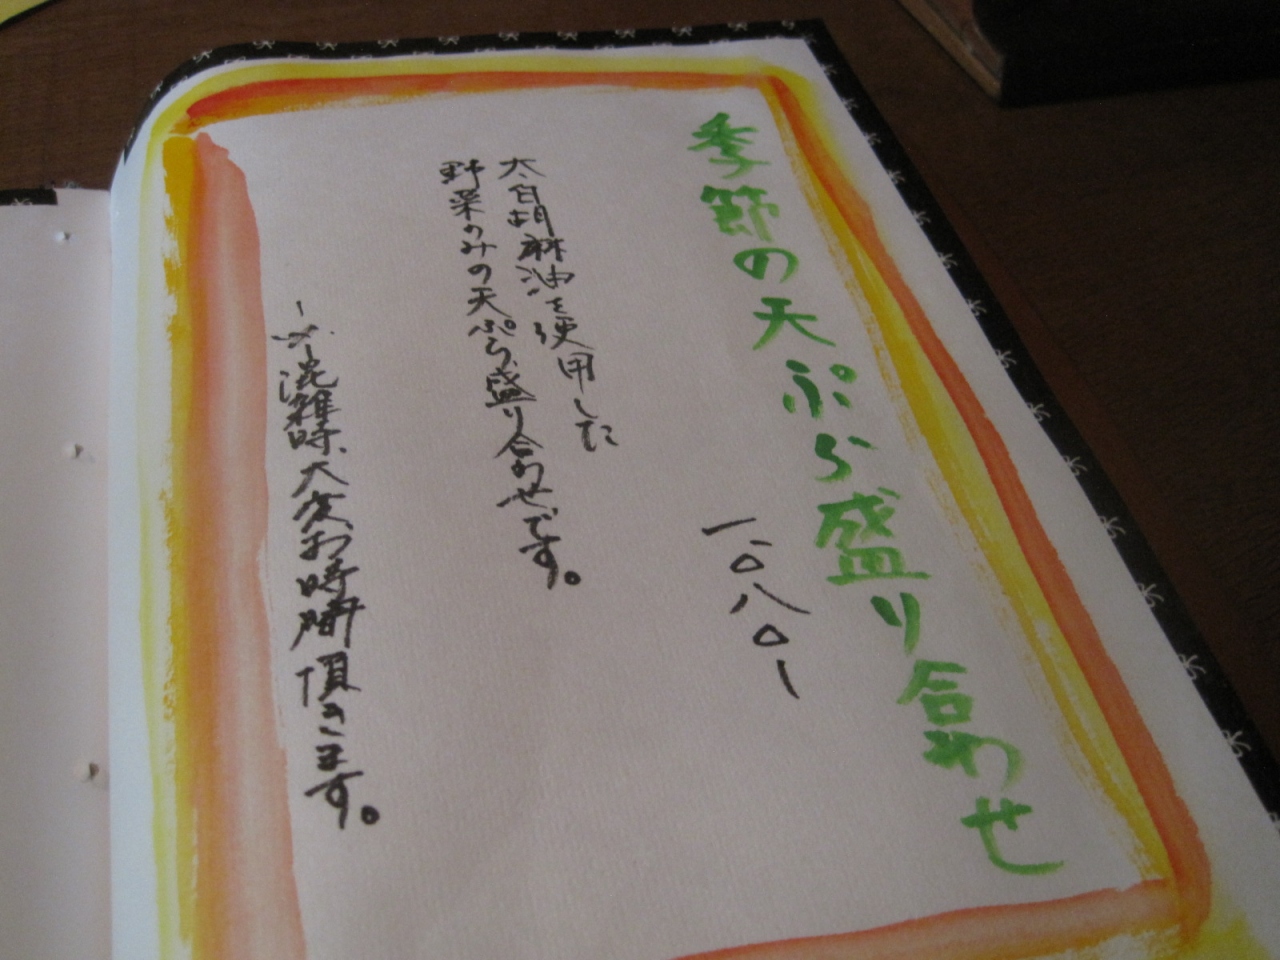 季節の天ぷら盛り合わせ
一、〇八〇ー
太白胡麻油を使用した
野菜のみの天ぷら盛り合わせです。
混雑時、大変お時間頂きます。